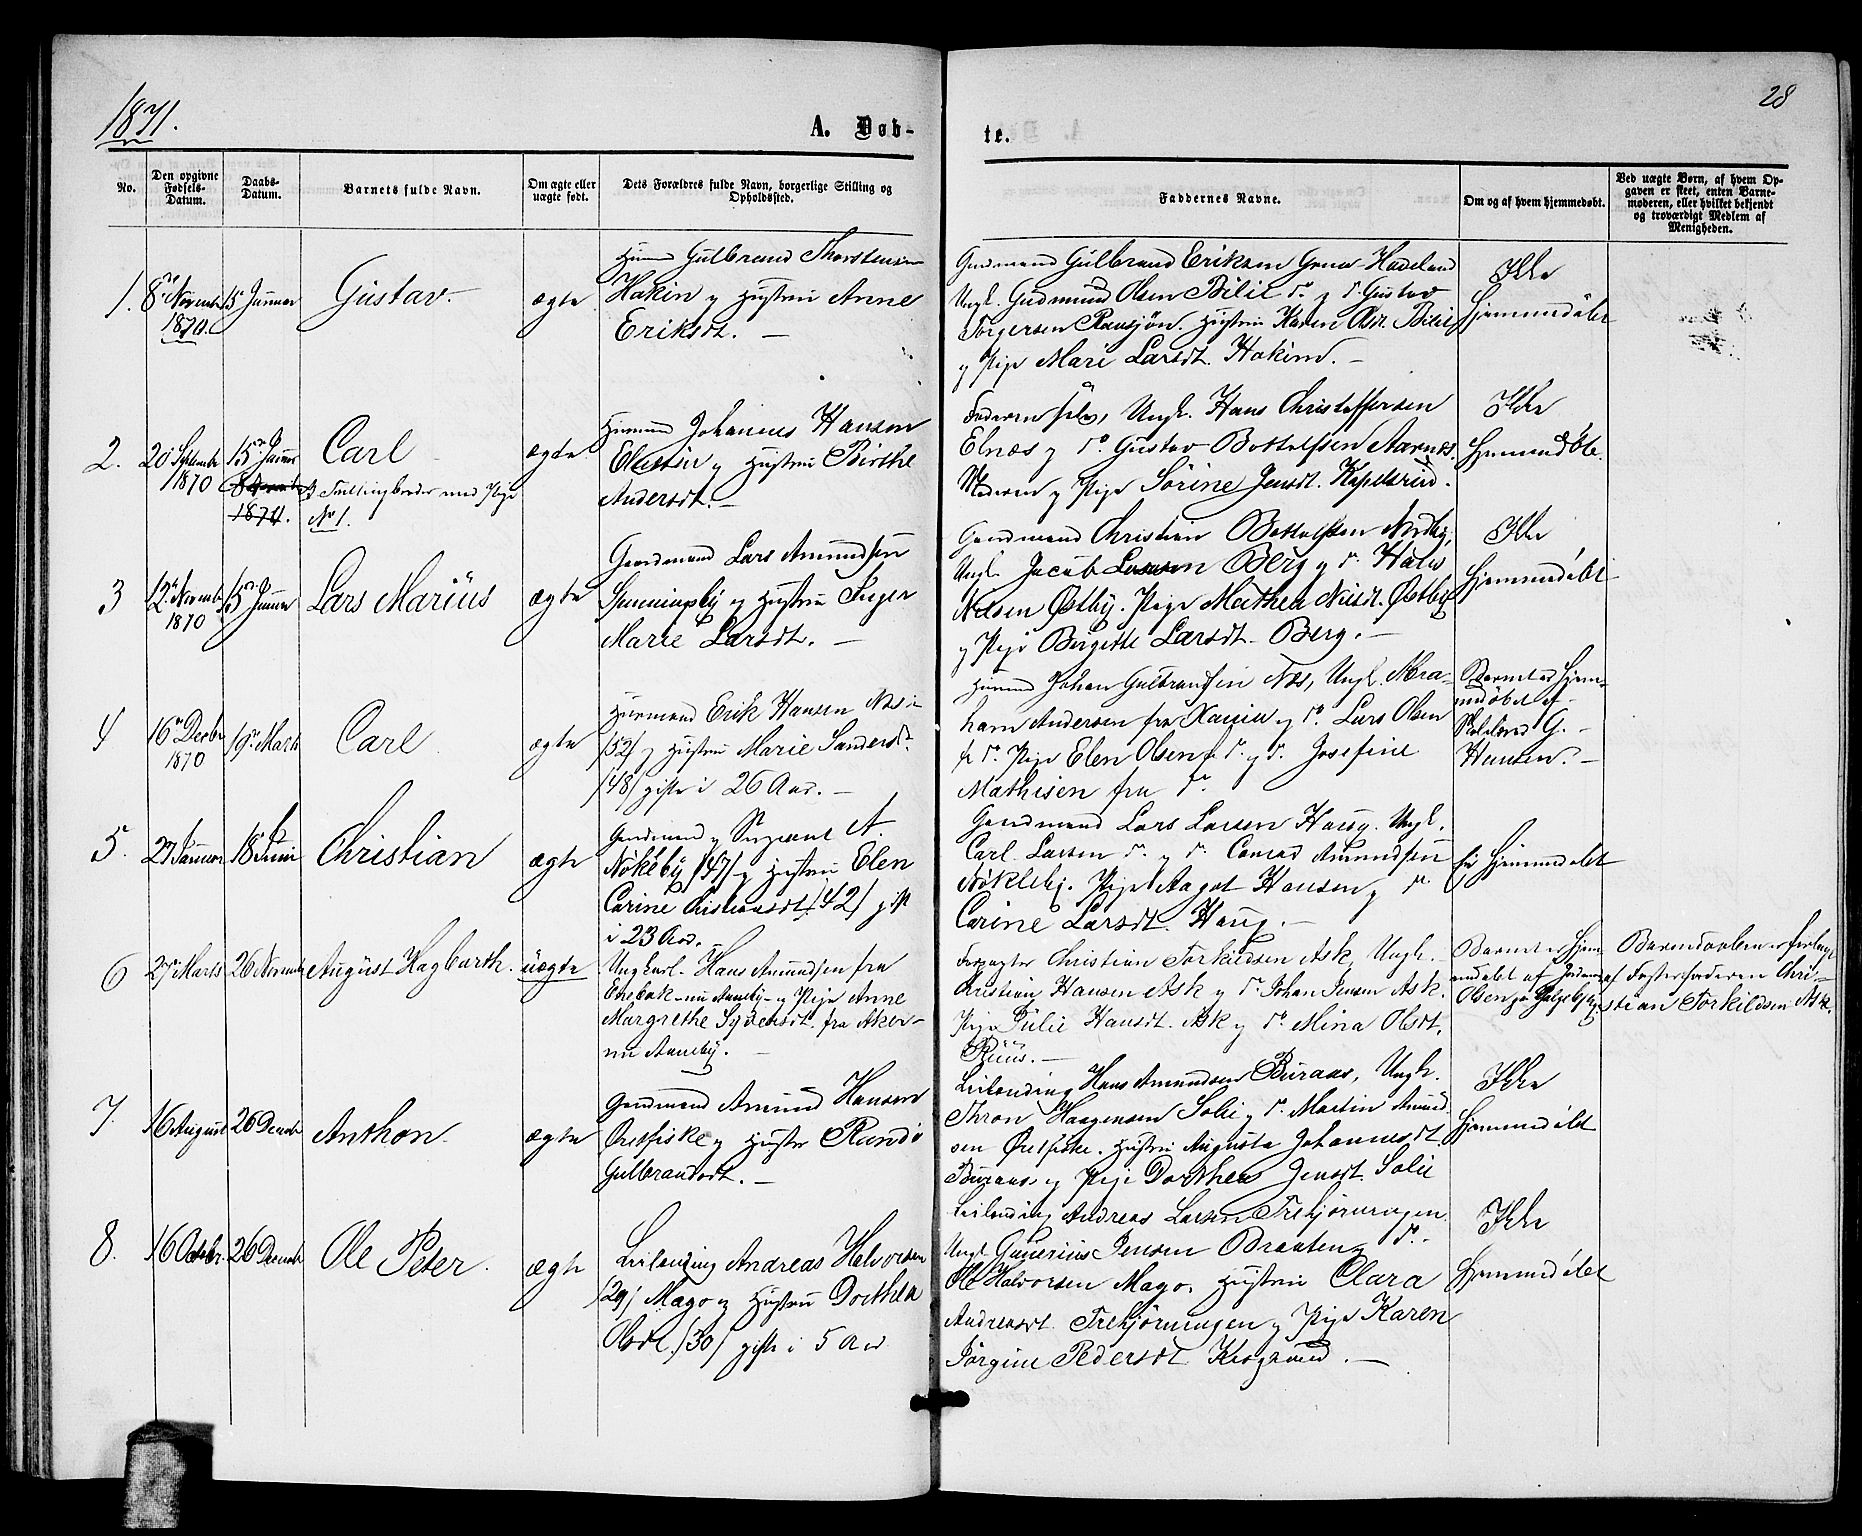 1871.
28
A. Døb-
te.
No.
Den opgivne
Fødsels-
Datum.
Daabs-
Datum.
Barnets fulde Navn.
Om ægte eller
uægte født.
Dets Forældres fulde Navn, borgerlige Stilling og
Opholdssted.
Faddernes Navne.
Om og af hvem hjemmedøbt.
Ved uægte Børn, af hvem Op-
gaven er skeet, enten Barne-
moderen, eller hvilket bekjendt
og troværdigt Medlem af
Menigheden.
1.
1870.
Gustav.
ægte
Gulbrand Thorstensen
Hakin og Hustru Anne
Eriksdt.
Gaardmand Gulbrand Eriksen Hadeland
Ungk. Gudmund Olsen Bilit do. og do. Gustav
Torgersen Ransjøn. Hustru Karen Olsdt. Bilit
og Pige Mari Larsdt. Hakin.
Ikke
Hjemmedøbt
2.
20 Septembr
1870
15de Januar
1871.
Carl
Tvillingbroder med Pige
No 1.
ægte
Johannes Hansen
og Hustru Birthe
Andersdt.
Faderen selv, Ungk. Hans Christoffersen
Elnæs og do. Gustav Bottolfsen Aarnæs.
Moderen og Pige Sørine Jensdt. Kapelsrud.
Ikke
Hjemmedøbt.
3
12te Novembr
1870
15de Januar
Lars Marius
ægte
Gaardmand Lars Amundsen
og Hustru Inger
Marie Larsdt.
Gaardmand Christian Bottolfsen Nordby,
Ungk. Jacob Larsen Berg og do. Hans
Nilsen Østby. Pige Mathea Nilsdt. Østby
og Pige Bergette Larsdt. Berg.
Ikke
Hjemmedøbt
4
16de Decbr
1870
19de Marts
Carl
ægte
Huusmand Erik Hansen Næs
/52/ og Hustru Marie Sandersdt.
/48/ gifte i 26 Aar.
Huusmand Johan Gulbrandsen Næs, Ungk. Abra-
ham Andersen fra og do. Lars Olsen
fr do. Pige Elen Olsen fr do. og do. Josefine
Mathisen fra do
Barnet er Hjem-
medøbt af
G.
Hansen.
5.
27 Januar
18de Juni
Christian
ægte
Gaardmand og Sergeant A.
Nøkleby /47/ og Hustru Elen
Carine Christiansdt. /42/ gift
i 23 Aar.
Gaardmand Lars Larsen Haug. Ungk.
Carl Larsen do. og do. Conrad Amundsen
Nøkleby. Pige Aagot Hansen og do
Carine Larsdt. Haug.
Ei Hjemmedøbt
6
27de Marts
26 Novembr
August Hagbarth.
uægte
Ungkarl. Hans Amundsen fra
Enebak nu Aaneby og Pige Anne
Margrethe fra Aker
nu Aaneby.
Forpagter Christian Torkildsen Ask, Ungk.
Christian Hansen Ask og do Johan Jensen Ask.
Pige Julie Hansdt. Ask og do. Mina Olsdt.
Ruus.
Barnet er Hjem-
medøbt af
Olsen
Barnedaaben er forlangt
af Fosterfaderen Chri-
stian Torkildsen Ask.
7.
16 August
26 Decembr
Anthon.
ægte
Gaardmand Amund Hansen
Ørtfiske og Hustru Randi
Gulbrandsdt.
Leilending Hans Amundsen Buraas, Ungk.
Thron Haagensen Solie og do. Martin Amund-
sen Ørtfiske. Hustru Augusta Johannesdt.
Buraas og Pige Dorthea Jensdt. Solie
Ikke
Hjemmedøbt
8.
16 Octobr.
26 Decembr
Ole Peter.
ægte
Leilending Andreas Halvorsen
/29/ Mago og Hustru Dorthea
Olsdt. /30/ gifte i 5 Aar
Leilending Andreas Larsen Trehjørningen
Ungk. Gunerius Jensen Braaten, do.
Ole Halvorsen Mago. Hustru Clara
Andreasdt. Trehjørningen og Pige Karen
Jørgine Pedersdt Krogsrud.
Ikke
Hjemmedøbt